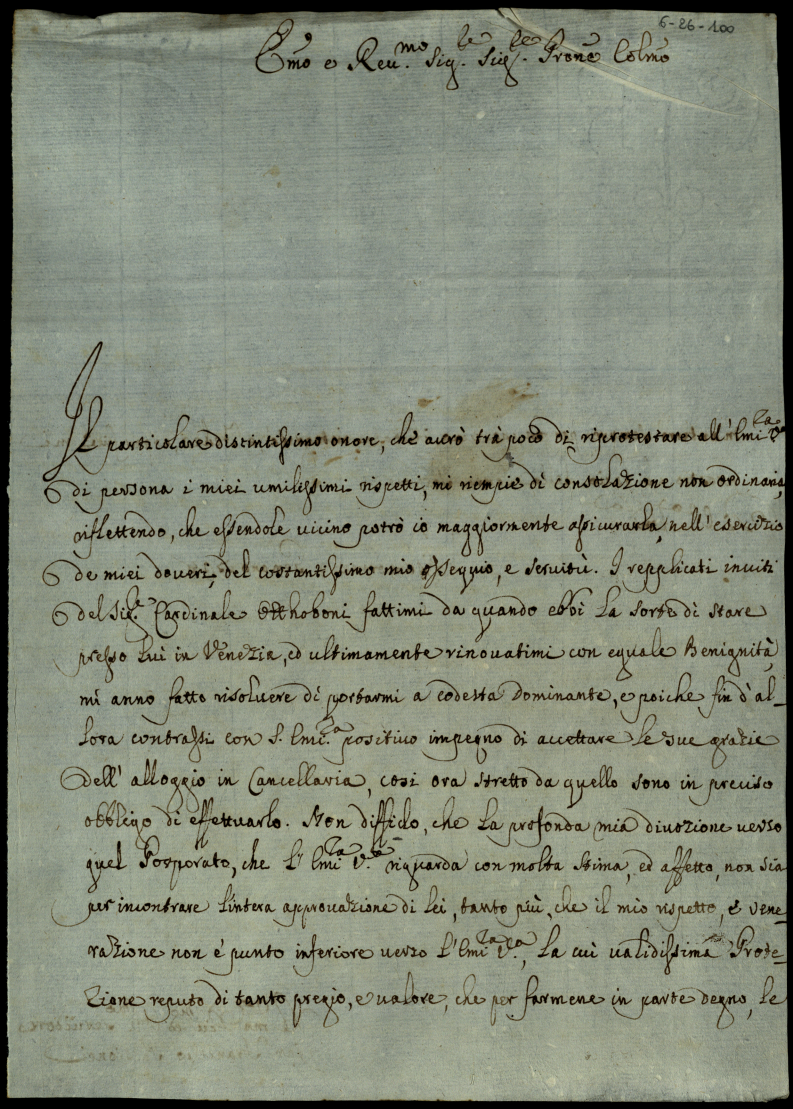 6-26-100
Emo e Reu.mo Sig.re Sig.re Prone Colmo
Il particolare distintissimo onore, che aurò trà poco di riprotestare all'Emi.za V.a
di persona i miei umilissimi rispetti, mi riempie di consolazione non ordinaria,
riflettendo, che essendole uicino potrò io maggiormente assicurarla, nell'esercizio
de miei doueri, del costantissimo mio ossequio, e seruitù. I repplicati inuiti
del Sig.re Cardinale Otthoboni fattimi da quando ebbi la sorte di stare
presso lui in Venezia, ed ultimamente rinouatimi con eguale Benignità,
mi anno fatto risoluere di portarmi a codesta Dominante, e poiche fin d'al-
lora contrassi con S. Emi.za positiuo impegno di accettare le sue grazie
dell'alloggio in Cancellaria, cosi ora stretto da quello sono in preciso
obbligo di effettuarlo. Non diffido, che la profonda mia diuozione uerso
quel Porporato, che l'Emi.za V.a riguarda con molta stima, ed affetto, non sia
per incontrare l'intera approuazione di lei, tanto più, che il mio rispetto, e vene-
razione non é punto inferiore uerso l'Emi.za V.a, la cui ualidissima Prote-
zione reputo di tanto pregio, e ualore, che per farmene in parte degno, le